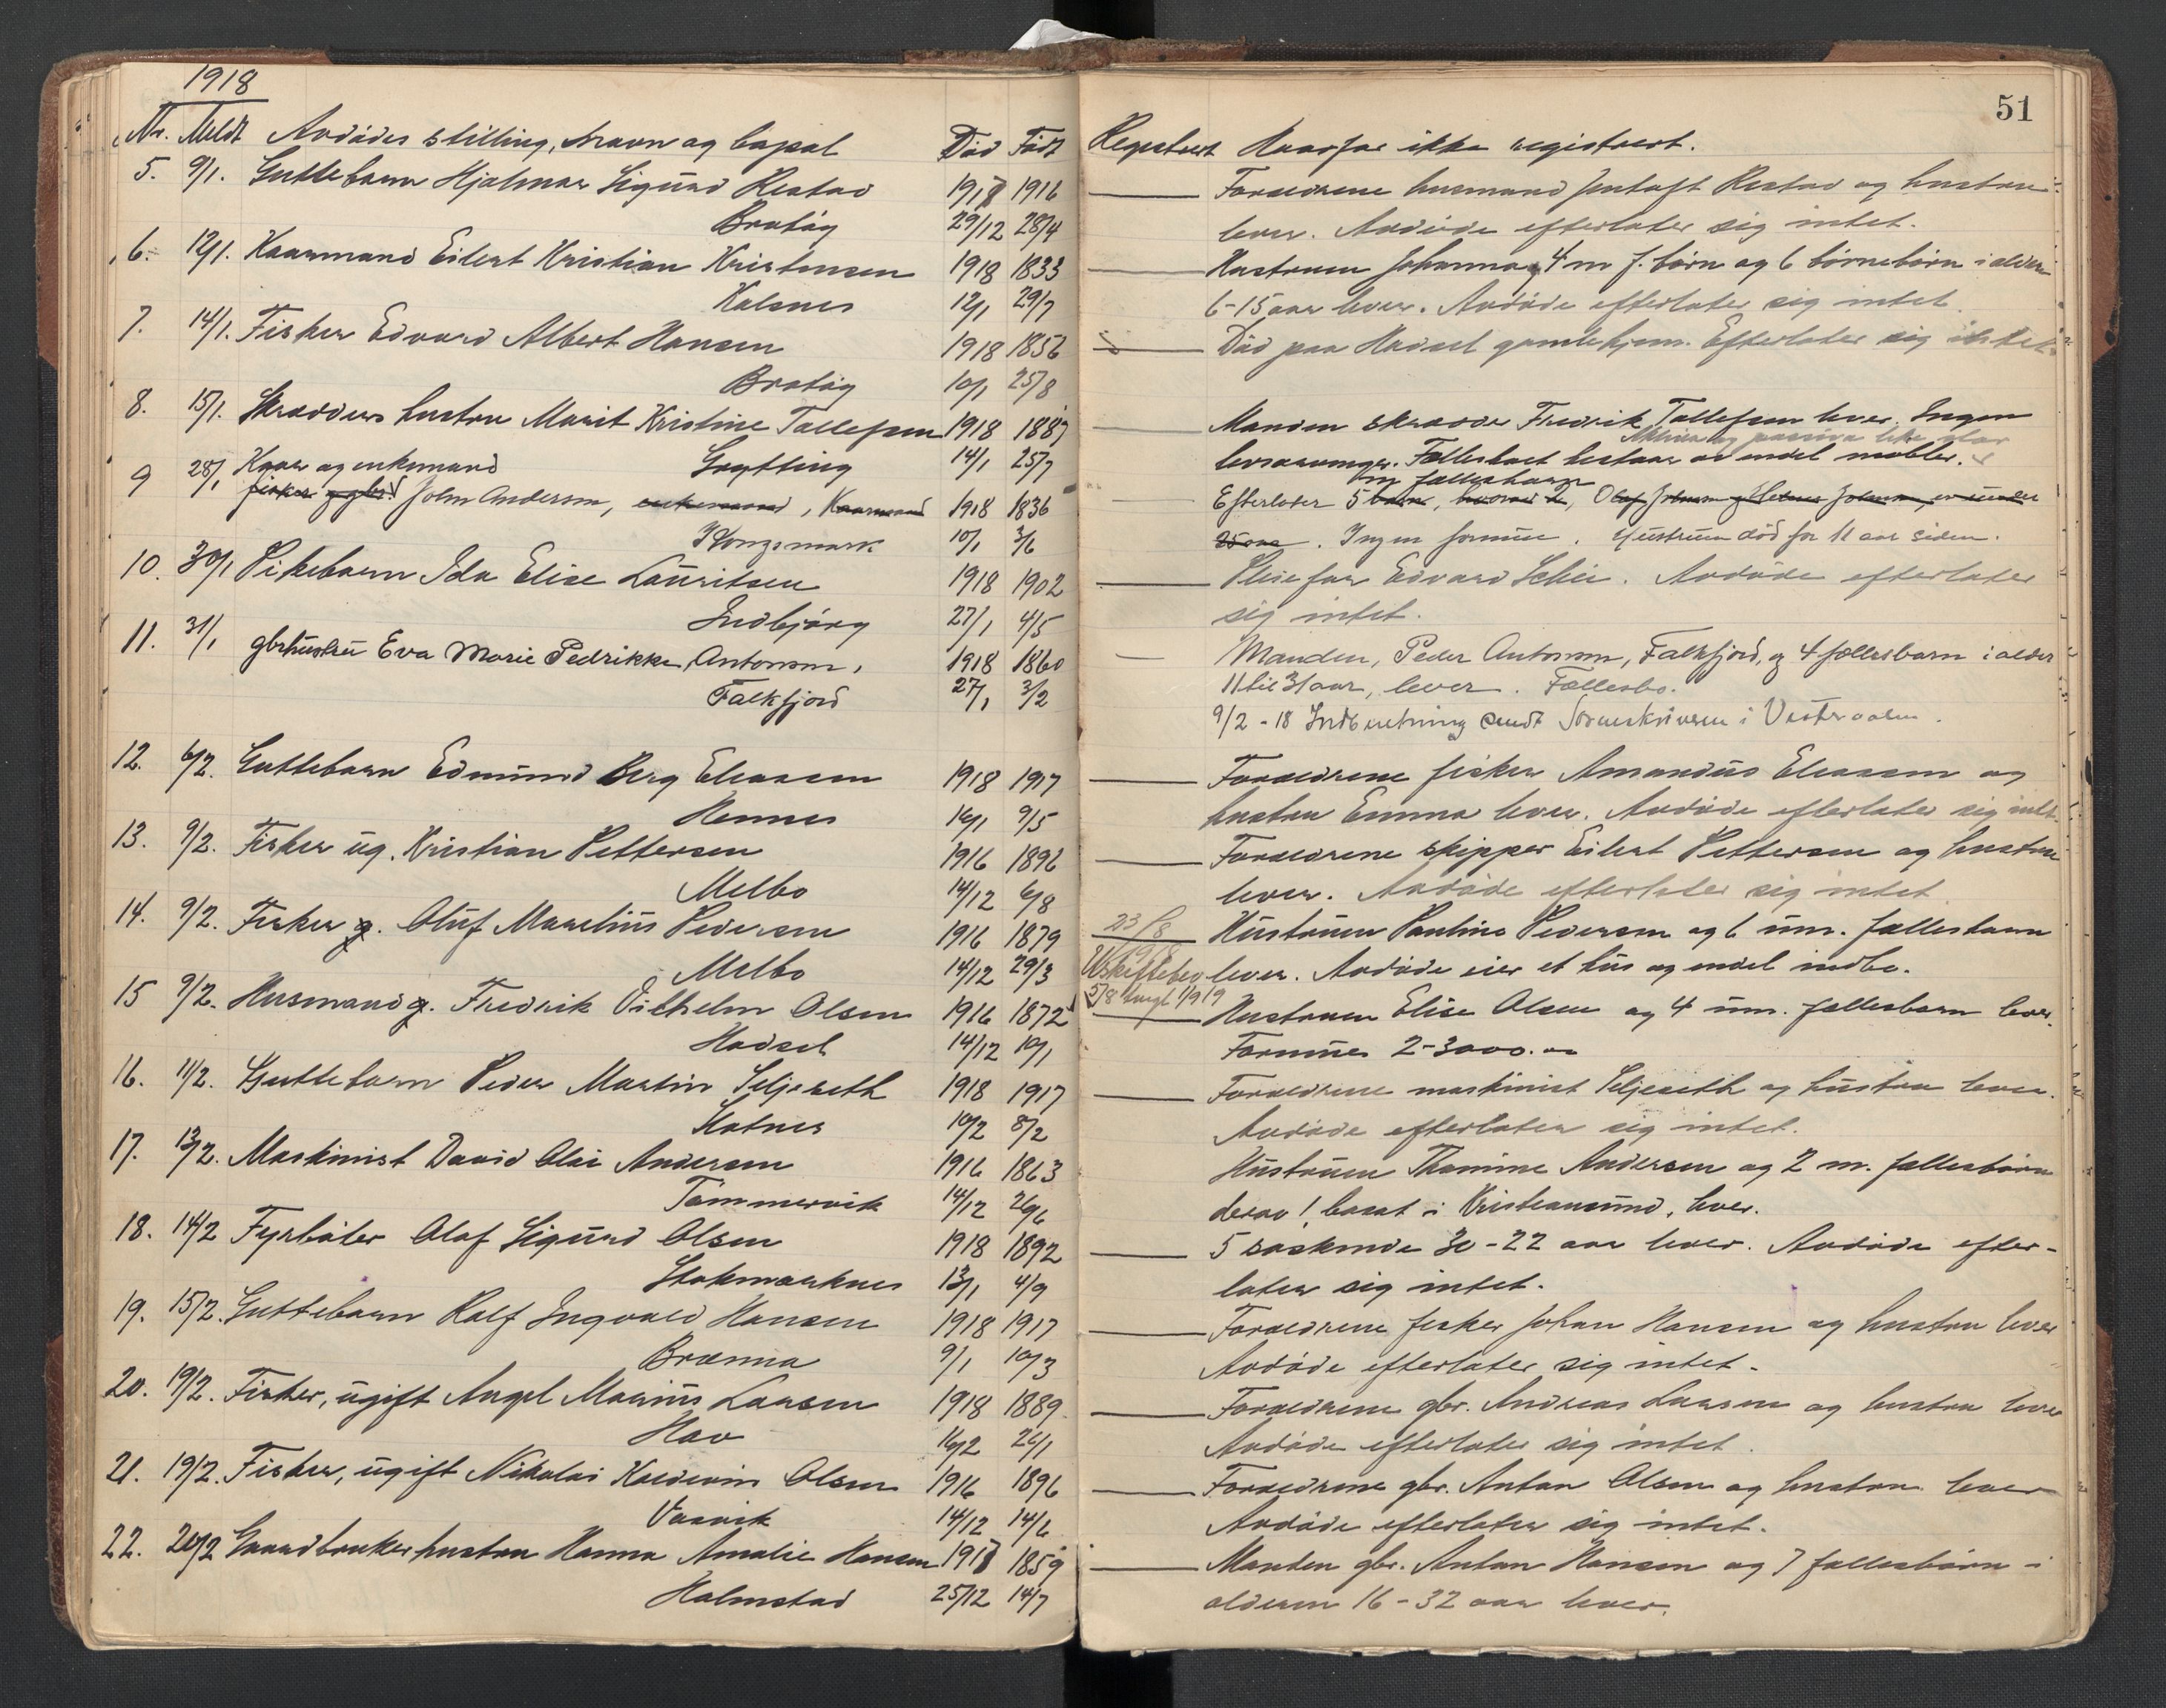 1918
Nr. Meldt Avdødes stilling, navn og bopæl Død Født
5. 9/1. Guttebarn Hjalmar Sigurd Restad 1917 1916
Bratøy 29/12 28/4
6. 12/1. Kaarmand Eilert Kristian Kristensen 1918 1833
Kalsnes 12/1 29/7
7. 14/1. Fisker Edvard Albert Hansen 1918 1856
Bratøy 10/1 25/8
8. 15/1. Skrædders hustru Marit Kristine Tollefsen 1918 1887
Grytting 14/1 25/7
9 28/1 Kaar og enkemand
fisker gbr John Andersen, enkemand, Kaarmand 1918 1836
Kongsmark 10/1 3/6
10. 30/1 Pikebarn Ida Elise Lauritsen 1918 1902
Indbjørg 27/1 4/5
11. 31/1 gbrhustru Eva Marie Pedrikke Antonsen, 1918 1860
Falkfjord 27/1 3/2
12. 6/2. Guttebarn Edmund Berg Eliassen 1918 1917
Hennes 16/1 9/5
13. 9/2. Fisker ug. Kristian Pettersen 1916 1896
Melbo 14/12 6/8
14. 9/2. Fisker g. Oluf Marelius Pedersen 1916 1879
Melbo 14/12 29/3
15 9/2. Husmand g. Fredrik Vilhelm Olsen 1916 1872
Hadsel 14/12 10/1
16. 11/2. Guttebarn Peder Martin Seljeseth 1918 1917
Skatnes 10/2 8/2
17. 13/2. Maskinist David Olai Andersen 1916 1863
Tømmervik 14/12 26/6
18. 14/2 Fyrbøter Olaf Sigurd Olsen 1918 1892
Stokmarknes 13/1 4/9
19. 15/2. Guttebarn Ralf Ingvald Hansen 1918 1917
Brænna 9/1 10/3
20. 19/2. Fisker, ugift Angel Marius Larsen 1918 1889
Hav 16/2 26/1
21. 19/2. Fisker, ugift Nikolai Kaldevin Olsen 1916 1896
Vasvik 14/12 14/6
22. 20/2 Gaardbruker hustru Hanna Amalie Hansen 1917 1859
Halmstad 25/12 14/7
51
Registrert Hvorfor ikke registrert.
Forældrene husmand Restad og hustru
lever. Avdøde efterlater sig intet.
Hustruen Johanna, 4 m f. børn og 6 børnebørn i alder
6-15 aar lever. Avdøde efterlater sig intet
Død paa Hadsel gamlehjem. Efterlater sig intet
Manden skrædder Fredrik Tollefsen lever. Ingen
Aktiva og passiva like stor
livsarvinger. Fællesboet bestaar av endel møbler.
fællesbarn
Efterlater 5 børn, hvorav 2, Olaf Johnsen og Johnsen, er under
25 aar. Ingen formue. Hustruen død for 11 aar siden.
Pleiefar Edvard Schei. Avdøde efterlater
sig intet.
Manden, Peder Antonsen, Falkfjord, og 4 fællesbarn i alder
11 til 31 aar, lever. Fællesbo.
9/2 - 18 Indberetning sendt Sorenskriveren i Vesteraalen.
Forældrene fisker Amandus Eliassen og
hustru Emma lever. Avdøde efterlater sig intet
Forældrene skipper Eilert Pettersen og hustru
lever. Avdøde efterlater sig intet
23/8 Hustruen Pauline Pedersen og 6 um. fællesbarn
Uskiftebev. lever. Avdøde eier et hus og endel indbo.
5/8 1919
Hustruen Elise Olsen og 4 um. fællesbarn lever.
Formue 2-3000.00
Forældrene maskinist Seljeseth og hustru lever.
Avdøde efterlater sig intet.
Hustruen Thomine Andersen og 2 m. fællesbørn
derav 1 bosat i Kristiansund, lever.
5 søskende 30-22 aar lever. Avdøde efter-
later sig intet.
Forældrene fisker Johan Hansen og hustru lever
Avdøde efterlater sig intet.
Forældrene gbr. Andreas Larsen og hustru lever
Avdøde efterlater sig intet.
Forældrene gbr. Antan Olsen og hustru lever
Avdøde efterlater sig intet.
Manden gbr. Antan Hansen og 7 fællesbørn i
alderen 16-32 aar lever.